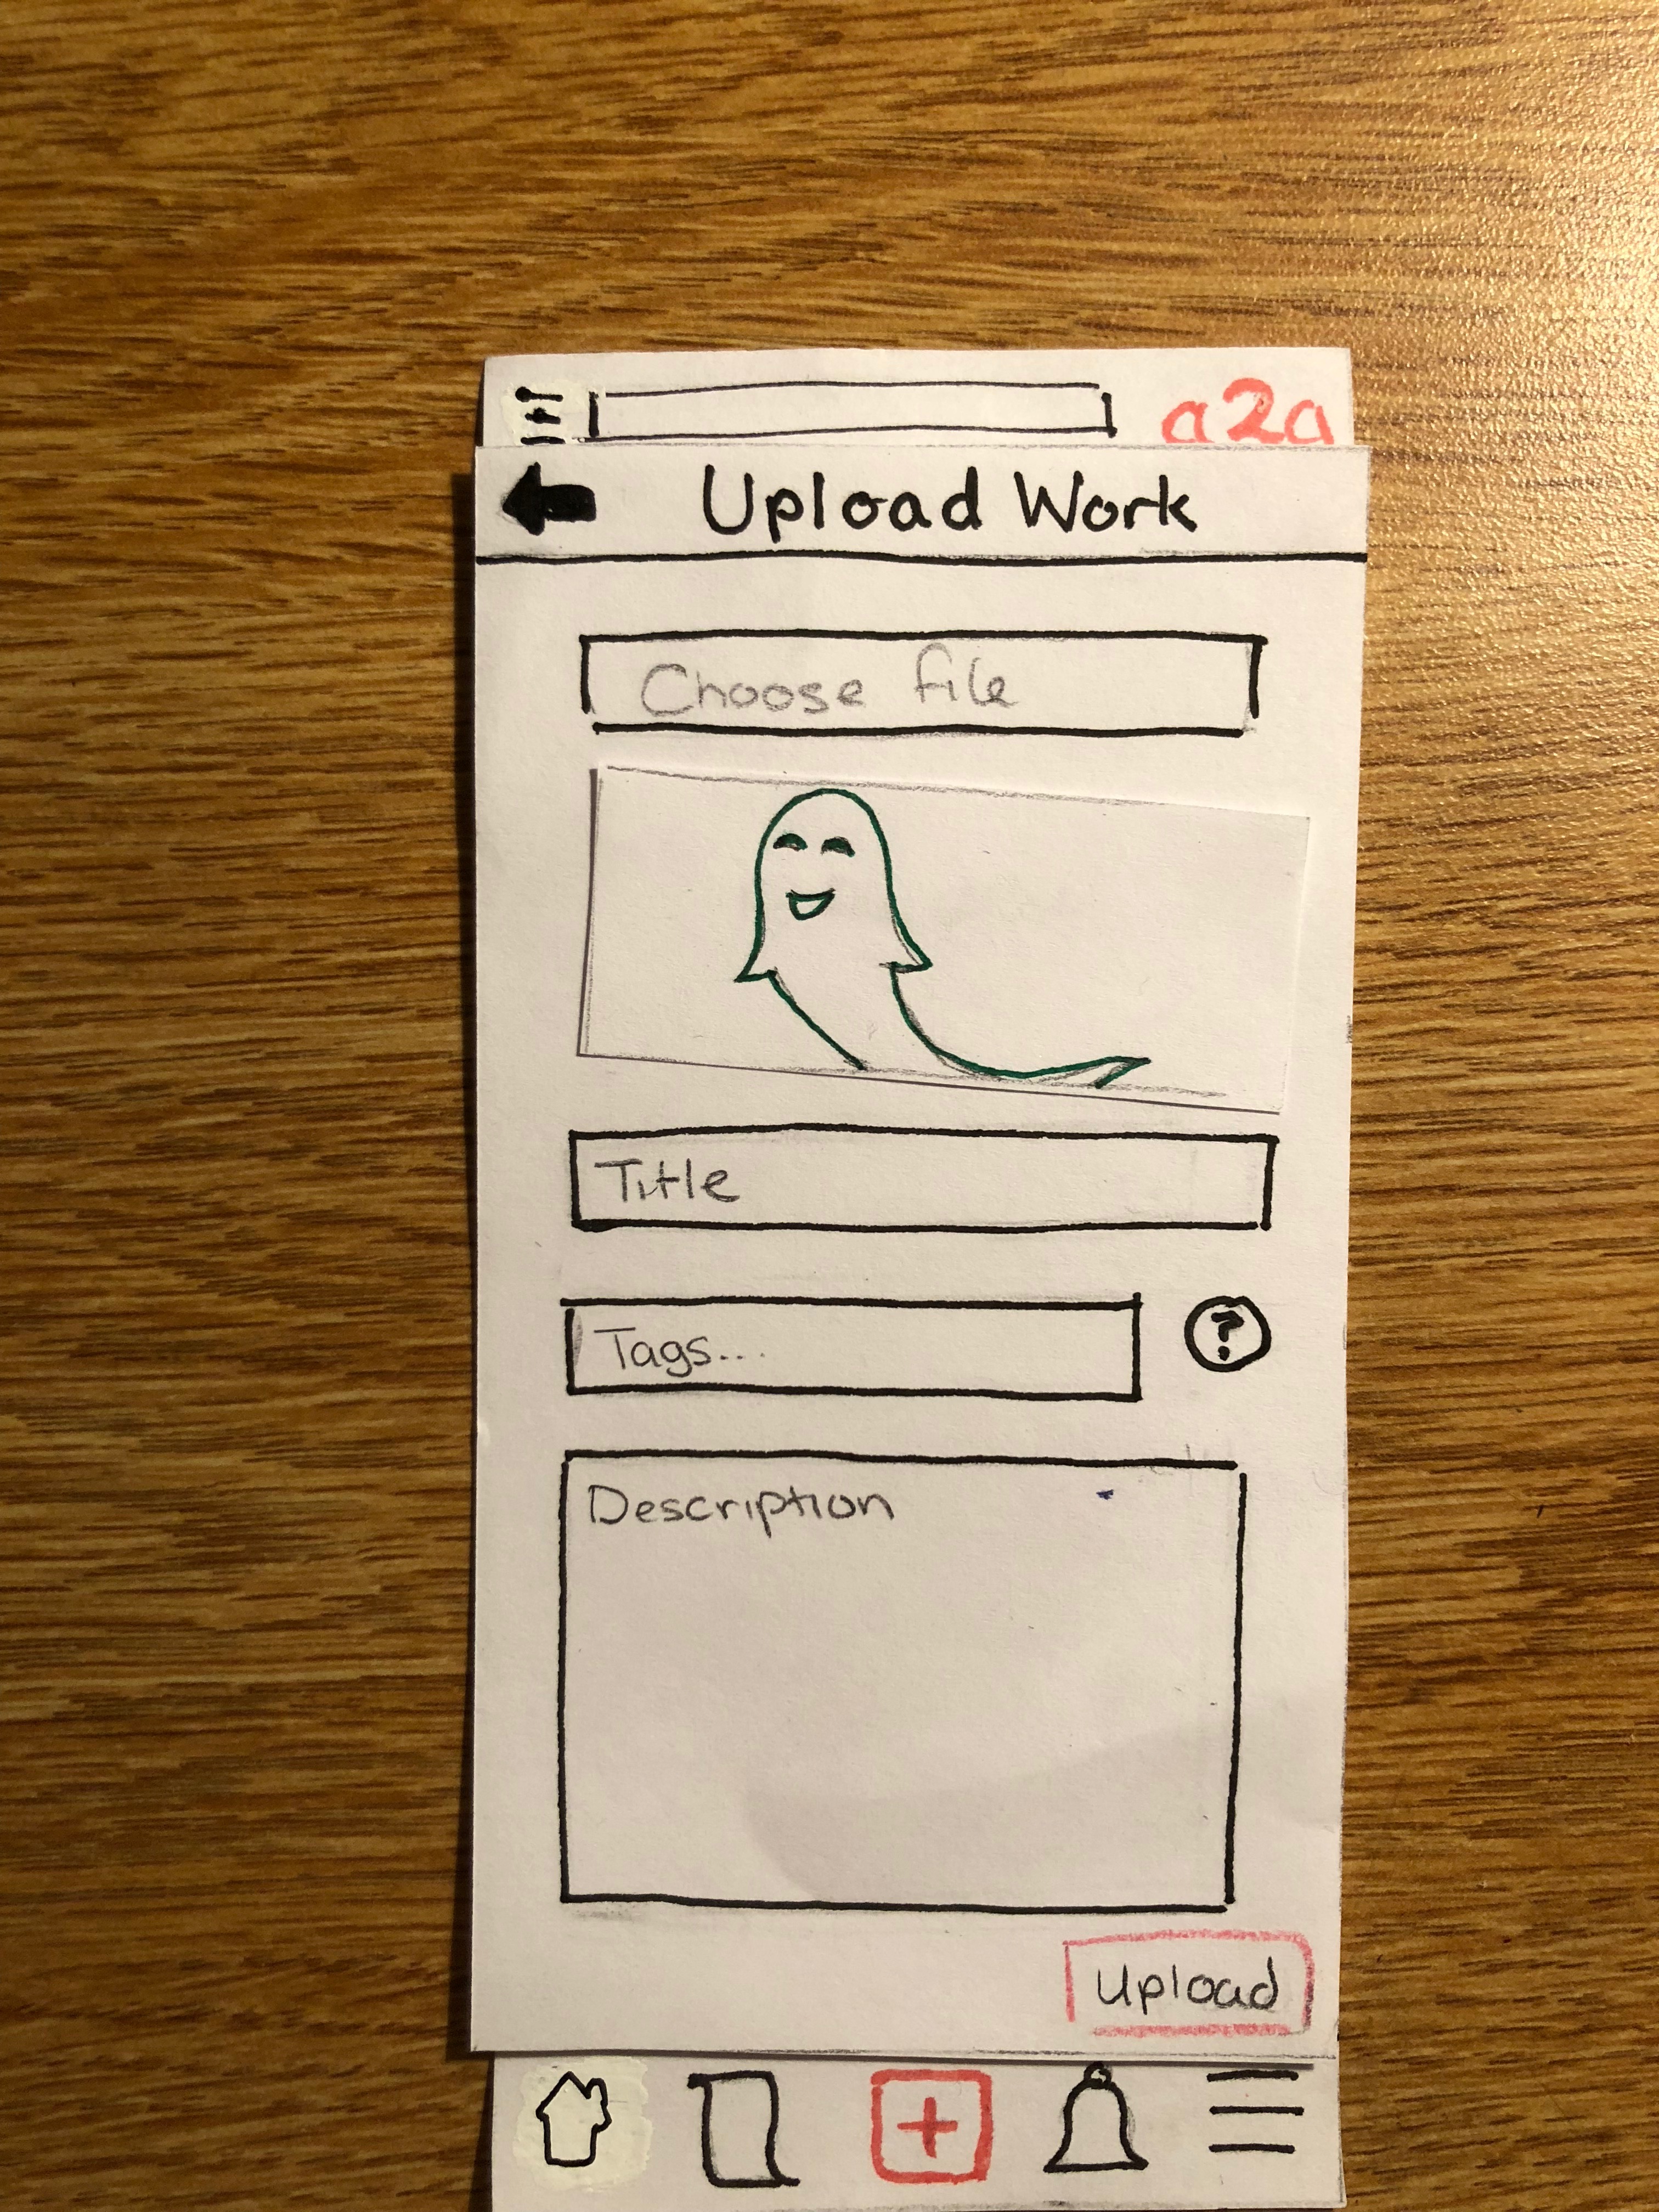 a2a
Upload Work
Choose file
Title
Tags...
?
Description
Upload